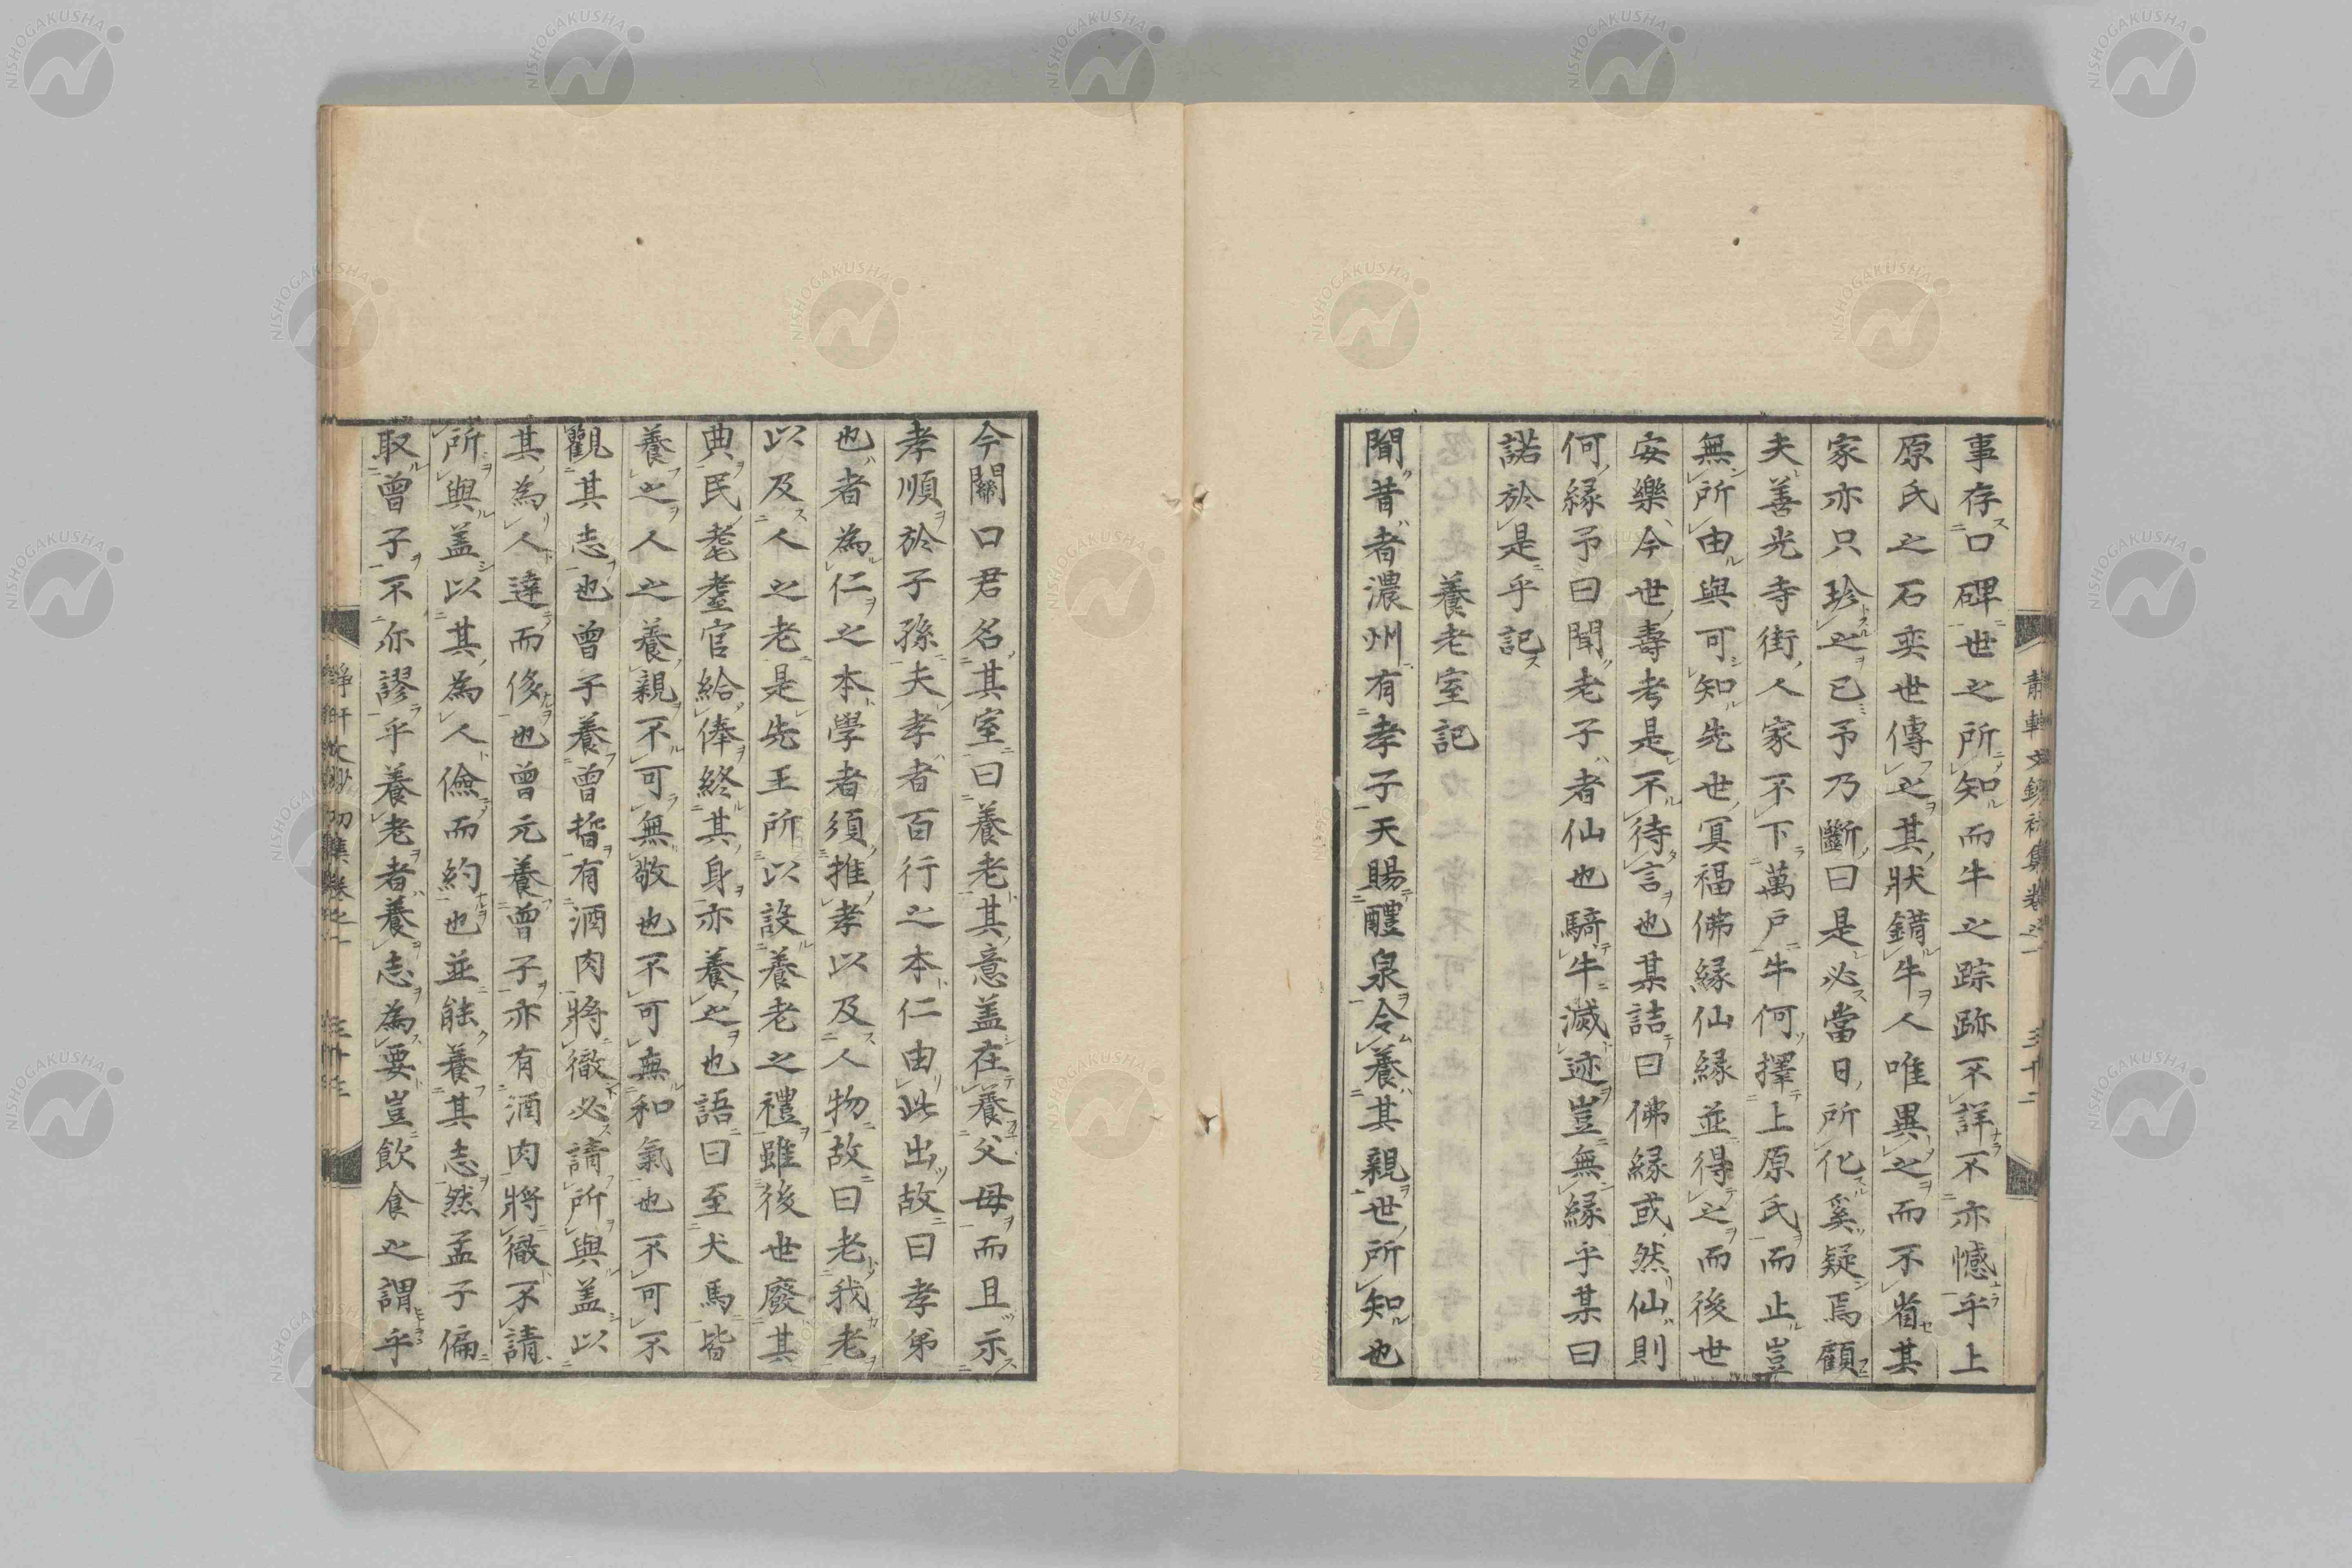 事存口碑世之所知而牛之踪跡不詳不亦憾乎上
原氏之石奕世傳之其狀錯牛人唯異之而不省其
家亦只珍之已予乃斷曰是必當日所化奚疑焉顧
夫善光寺街人家不下萬戶牛何擇上原氏而止豈
無所由與可知先世冥福佛緣仙緣並得之而後世
安樂今世壽考是不待言也某詰曰佛緣或然仙則
何緣予曰聞老子者仙也騎牛滅迹豈無緣乎某曰
諾於是乎記
養老室記
聞昔者濃州有孝子天賜醴泉令養其親世所知也
今關口君名其室曰養老其意蓋在養父母而且示
孝順於子孫夫孝者百行之本仁由此出故曰孝弟
也者為仁之本學者須推孝以及人物故曰老我老
以及人之老是先王所以設養老之禮雖後世廢其
典民耄耋官給俸終其身亦養之也語曰至犬馬皆
養之人之養親不可無敬也不可無和氣也不可不
觀其志也曾子養曾晳有酒肉將徹必請所與蓋以
其為人達而侈也曾元養曾子亦有酒肉將徹不請
所與蓋以其為人儉而約也並能養其志然孟子偏
取曾子不亦謬乎養老者養志為要豈飲食之謂乎